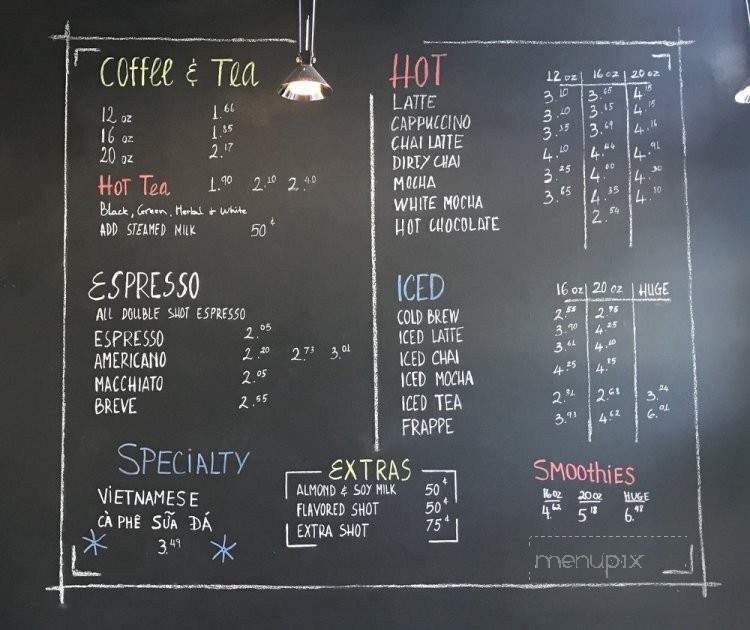 Coffee & Tea
12 oz 1.66
16 oz 1.85
20 oz 2.17
Hot Tea 1.90 2.10 2.40
Black, Green, Herbal & White
ADD STEAMED MILK 50¢
ESPRESSO
ALL DOUBLE SHOT ESPRESSO
ESPRESSO 2.05
AMERICANO 2.20 2.73 3.01
MACCHIATO 2.05
BREVE 2.55
SPECIALTY
VIETNAMESE
CÀ PHÊ SỮA ĐÁ
3.49
EXTRAS
ALMOND & SOY MILK 50¢
FLAVORED SHOT 50¢
EXTRA SHOT 75¢
HOT
12 oz 16 oz 20 oz
LATTE 3.10 3.65 4.15
CAPPUCCINO 3.10 3.65 4.15
CHAI LATTE 3.35 3.69 4.16
DIRTY CHAI 4.10 4.66 4.91
MOCHA 3.25 4.00 4.30
WHITE MOCHA 3.65 4.35 4.10
HOT CHOCOLATE 2.54
ICED
16 oz 20 oz HUGE
COLD BREW 2.55 2.95
ICED LATTE 3.90 4.25
ICED CHAI 3.61 4.10
ICED MOCHA 4.25 4.85
ICED TEA 2.21 2.68 3.24
FRAPPE 3.93 4.62 6.01
SMOOTHIES
16 oz 20 oz HUGE
4.62 5.18 6.98
menupix